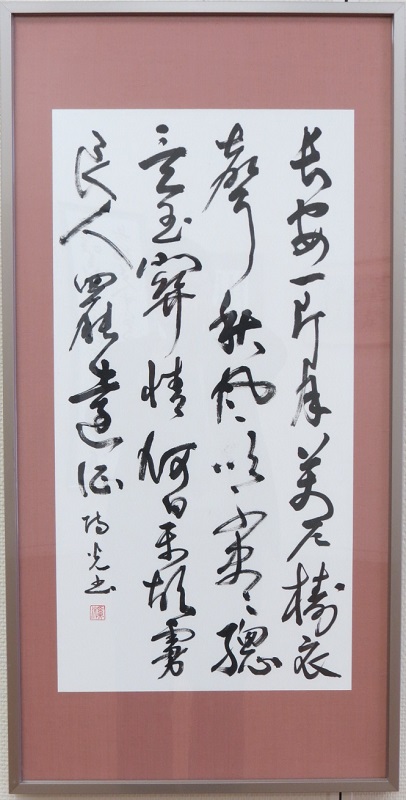 長安一片月萬戶擣衣
聲秋風吹不盡總
是玉關情何日平胡虜
良人罷遠征 光書